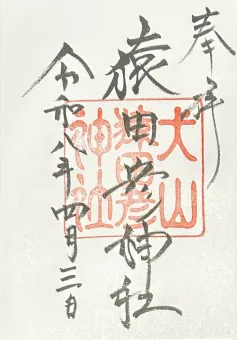 奉拝
猿田彦神社
令和八年四月三日
犬山
猿田彦
神社